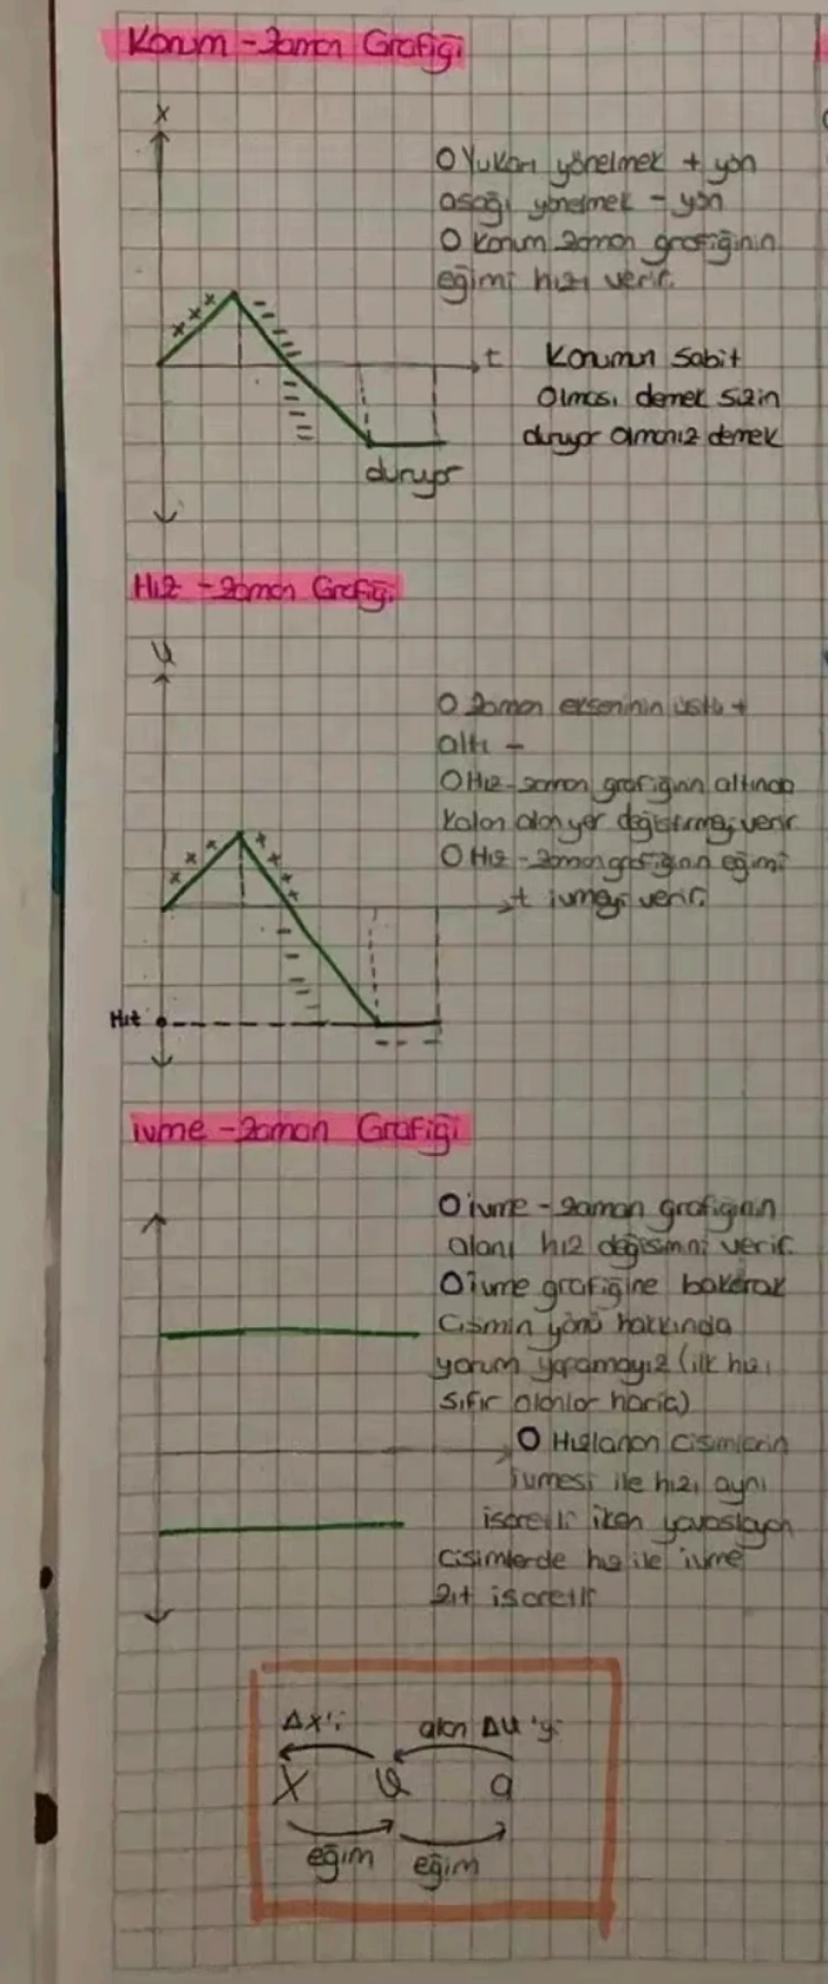 Konum - Zaman Grafiği
x
O Yukarı yönelmek + yön
aşağı yönelmek - yön
O Konum zaman grafiğinin
eğimi hızı verir.
t
Konumun sabit
olması demek sizin
duruyor olmanız demek
duruyor
Hız - Zaman Grafiği
ϑ
O Zaman ekseninin üstü +
altı -
O Hız-zaman grafiğinin altında
kalan alan yer değiştirmeyi verir
O Hız - zaman grafiğinin eğimi
t ivmeyi verir.
ivme - Zaman Grafiği
O ivme - zaman grafiğinin
alanı hız değişimini verir.
O ivme grafiğine bakarak
Cismin yönü hakkında
yorum yapamayız (ilk hızı
sıfır olanlar hariç)
O Hızlanan cisimlerin
ivmesi ile hızı aynı
işaretli iken yavaşlayan
cisimlerde hız ile ivme
zıt işaretli
Δx'i alan Δϑ'yi
X ϑ a
eğim eğim